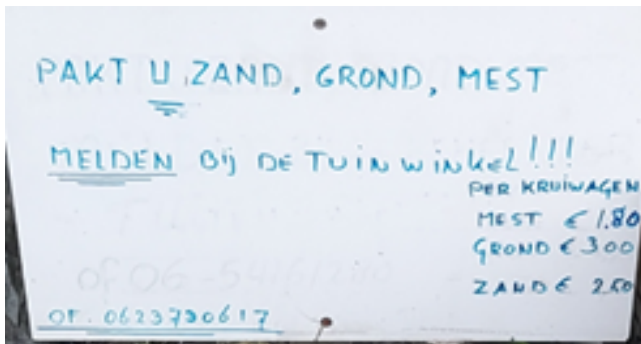 PAKT U ZAND, GROND, MEST
MELDEN Bij DE TUiN WiNKEL!!!
PER KRUiWAGEN
MEST € 1.80
GROND € 300
ZAND € 2.50
OF. 0623730617